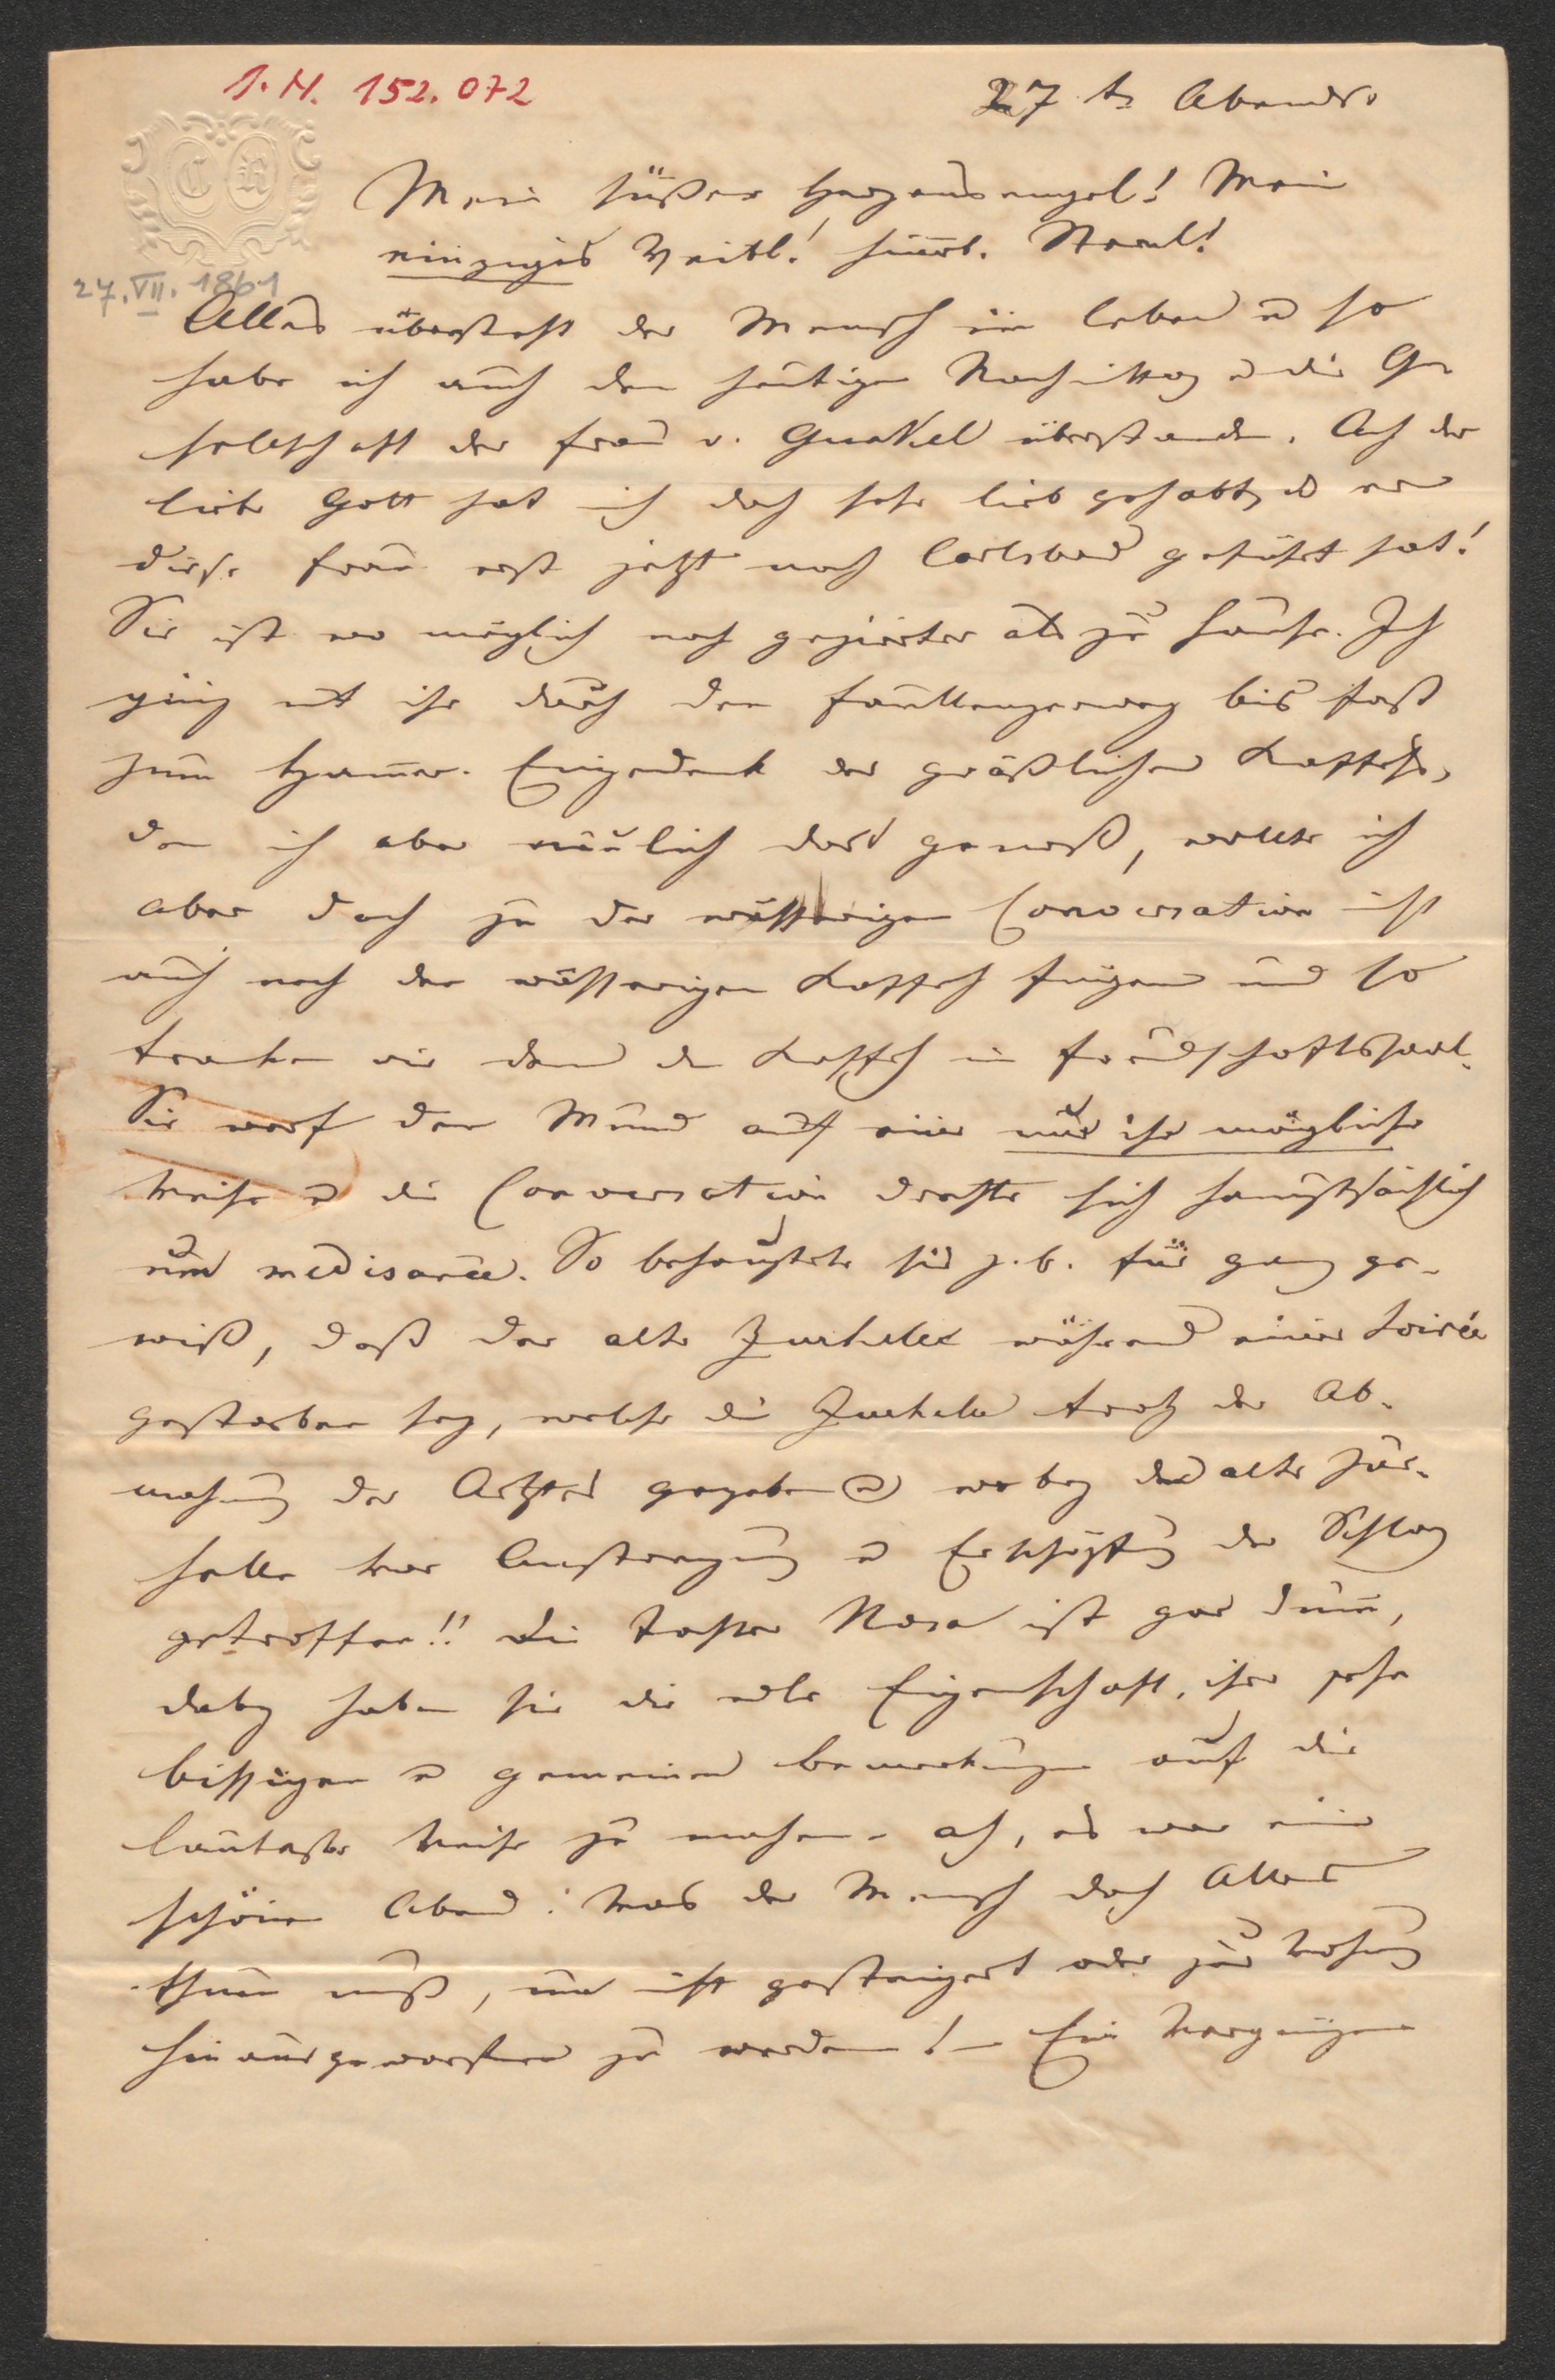 I. N. 152.072
27 t. Abends.
C R
27.VII.1861
Mein süßer Herzensengel! Mein
einziges Weibl!
Alles übersteht der Mensch im Leben u so
habe ich auch den heutigen Nachmittag u die Ge
sellschaft der Frau v. Gunkel überstanden. Ach der
liebe Gott hat mich doch sehr lieb gehabt, daß er
diese Frau erst jetzt nach Carlsbad geführt hat!
Sie ist wo möglich noch gezierter als zu Hause. Ich
ging mit ihr durch den Faullenzerweg bis fast
zum Hammer. Eingedenk des gräßlichen Kaffehs,
den ich aber neulich dort genoß, wollte ich
aber doch zu der wässerigen Conversation nicht
auch noch den wässerigen Kaffeh fügen und so
tranken wir denn den Kaffeh im Freundschaftssaal.
Sie warf den Mund auf eine nur ihr mögliche
Weise u die Conversation drehte sich hauptsächlich
um medisance. So behauptete sie z. b. für ganz ge-
wiß, daß der alte Zurhelle während einer Soirée
gestorben sey, welche die Zurhelle trotz der Ab-
mahnung der Ärzte gegeben u wobey den alten Zur-
helle vor Anstrengung u Erschöpfung der Schlag
getroffen!! Die Tochter Rosa ist gar dumm,
dabey haben sie die edle Eigenschaft, ihre sehr
bissigen u gemeinen Bemerkungen auf die
lauteste Weise zu machen - ach, es war ein
schöner Abend! Was der Mensch doch Alles
thun muß, um nicht gesteigert oder zur Wohnung
hinausgeworfen zu werden! - Ein Vergnügen